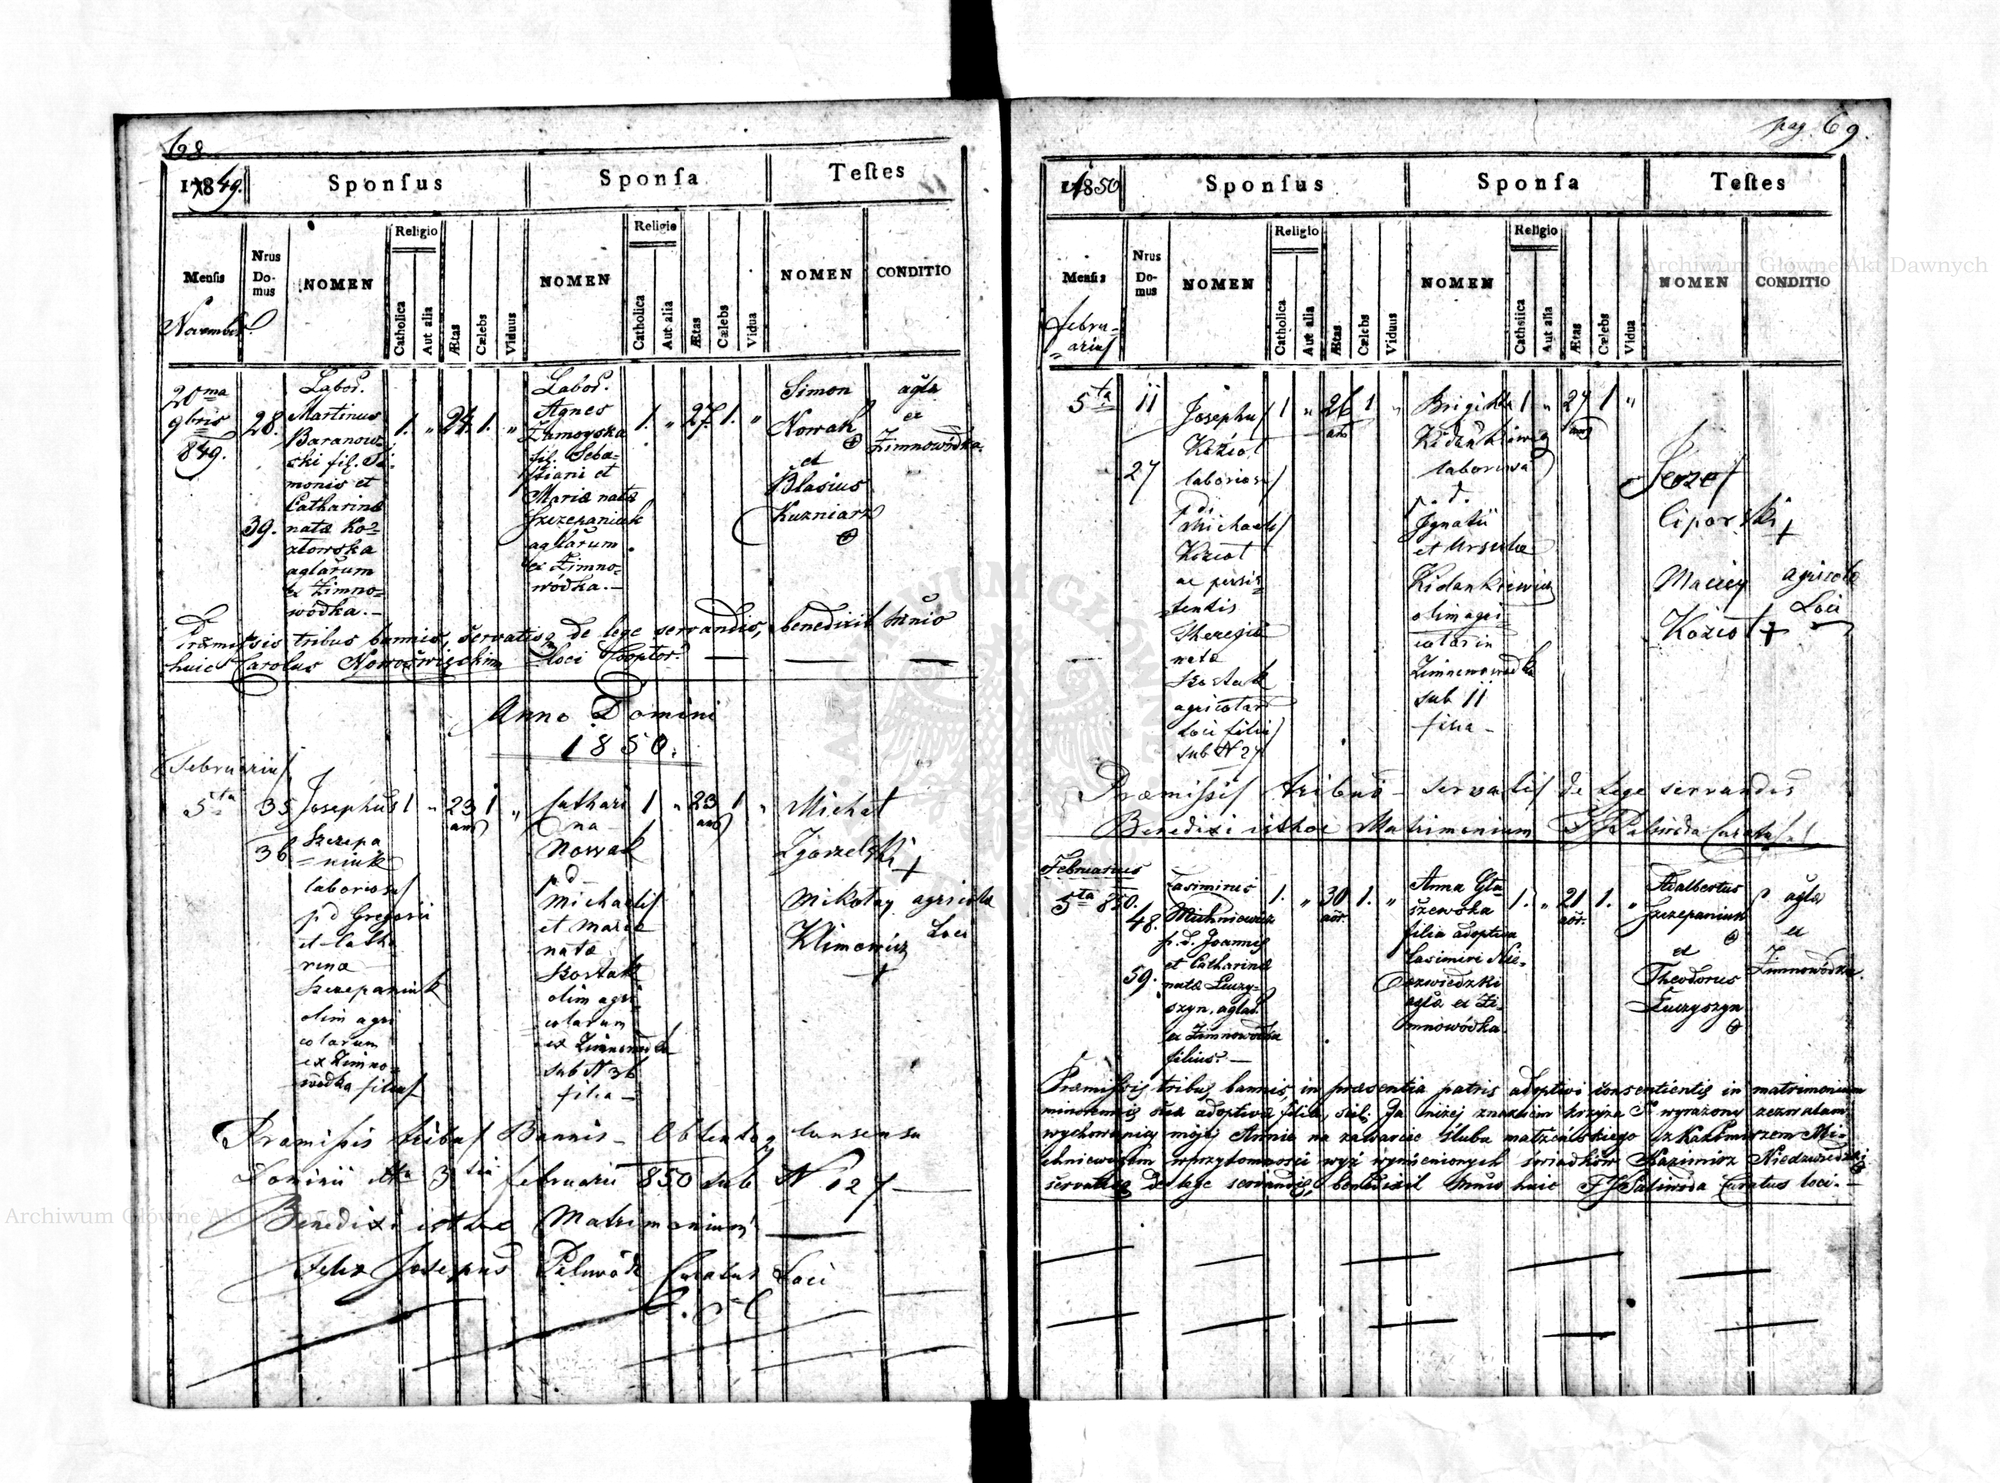 68
1849.
Sponſus
Sponſa
Teſtes
Menſis
Nrus Do-mus
NOMEN
Religio
Catholica
Aut alia
Ætas
Cælebs
Viduus
NOMEN
Religio
Catholica
Aut alia
Ætas
Cælebs
Vidua
NOMEN
CONDITIO
November
20ma
9bris
849.
28.
39.
Labor.
Martinus
Baranow-
ski fil. Si-
monis et
Catharinæ
natæ Ko-
złowska
aglarum
ex Zimno-
wódka.—
1. „ 24. 1. „
Labor.
Agnes
Zamoyska
fil. Seba-
stiani et
Mariæ natæ
Szczepaniuk
aglarum
ex Zimno-
wódka.—
1. „ 27. 1. „
Simon
Nowak
et
Blasius
Kuzniarz
agla
ex
Zimnowódka.
Præmissis tribus bannis, servatisq de lege servandis, benedixit mnio
huic Carolus loci Cooptor.
Anno Domini
1850.
Februarius
5ta
35
36
Josephus
Szczepa
niuk
laboriosus
p d Gregorii
et Catha
rinæ
Szczepaniuk
olim agri
colarum
ex Zimno-
wodka filius
1 „ 23 1 „
an
Cathari
na
Nowak
p d
Michaelis
et Mariæ
natæ
Szostak
olim agri
colarum
ex Zimnowodka
sub N 36
filia —
1 „ 23 1 „
an
Michał
Zgorzelski
+
Mikołay
Klimowicz
+
agricola
Loci
Præmissis tribus Bannis — Obtentoq consensu
Dominii dtto 3tia februarii 850 sub N 127 —
Benedixi isthoc Matrimonium —
Felix Josephus Curatus Loci
pag. 69.
1850
Sponſus
Sponſa
Teſtes
Menſis
Nrus Do-mus
NOMEN
Religio
Catholica
Aut alia
Ætas
Cælebs
Viduus
NOMEN
Religio
Catholica
Aut alia
Ætas
Cælebs
Vidua
NOMEN
CONDITIO
febru-
arius
5ta
11
27
Josephus
Kozioł
laboriosus
p d.
Michaelis
Kozioł
ac persis
tentis
natæ
Szostak
agricolar
Loci filius
sub N 27
1 „ 26 1 „
an
Brigitta
laboriosa
p. d.
Ignatii
et Ursulæ
Kidankiewicz
olim agri-
colar in
Zimnowodka
sub 11
filia —
1 „ 27 1 „
an
Jozef
Liporski
+
Maciey
Kozioł +
agricolæ
Loci
Præmissis tribus — servatis de Lege servandis
Benedixi isthoc Matrimonium
Februarius
5ta 850.
48.
59.
Casimirus
Michniewicz
p. d. Joannis
et Catharinæ
natæ Luczy-
szyn, aglar.
ex Zimnowódka
filius. —
1. „ 30 1. „
anr.
Anna Gła-
szewska
filia adoptiva
Casimiri Nie-
dzwiedzki
agla ex Zi-
mnowódka.
1. „ 21 1. „
anr.
Adalbertus
Szczepaniuk
et
Theodorus
Łuczyszyn
agla
ex
Zimnowódka.
Præmissis tribus bannis, in præsentia patris adoptivi consentientis in matrimonium
minorennis suæ adoptivæ filiæ, scil. Ja niżej znakiem krzyża S wyrażony zezwalam
wychowanicy mojej Annie na zawarcie ślubu małżeńskiego z Kazimierzem Mi-
chniewiczem w przytomności wyż wymienionych świadków Kazimirz Niedzwiedzki
servatisq de lege servandis, benedixit mnio huic Curatus loci. —
Archiwum Główne Akt Dawnych
Archiwum Główne Akt Dawnych